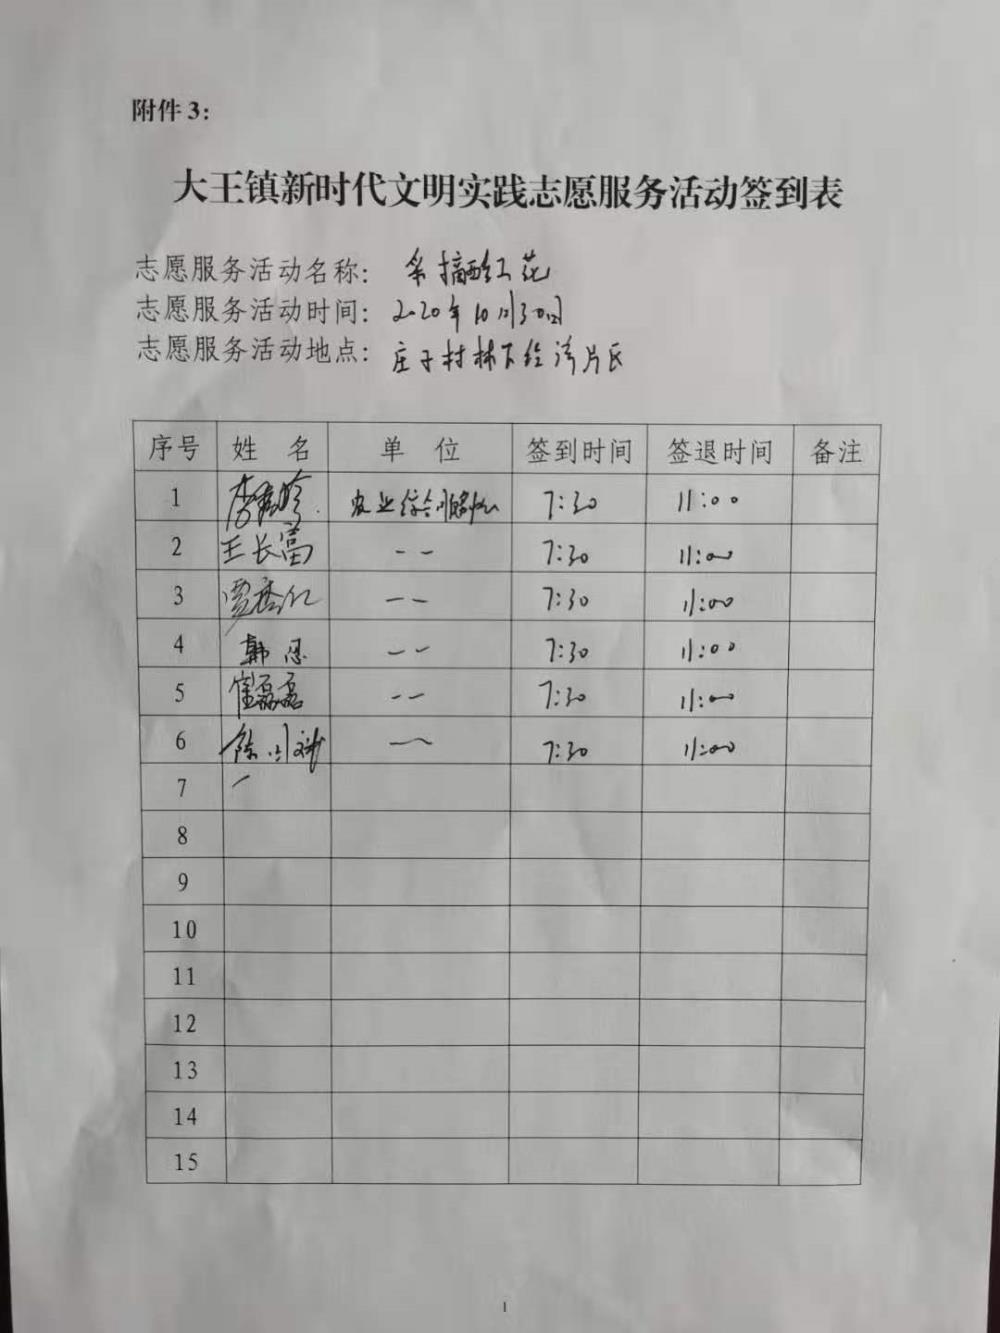 附件3:
大王镇新时代文明实践志愿服务活动签到表
志愿服务活动名称: 采摘西红花
志愿服务活动时间: 2020年10月30日
志愿服务活动地点: 庄子村林下经济片区
序号 姓名 单位 签到时间 签退时间 备注
1 农业综合服务中心 7:30 11:00
2 王长富 -- 7:30 11:00
3 贾 -- 7:30 11:00
4 韩忍 -- 7:30 11:00
5 崔磊磊 -- 7:30 11:00
6 7:30 11:00
7
8
9
10
11
12
13
14
15
1